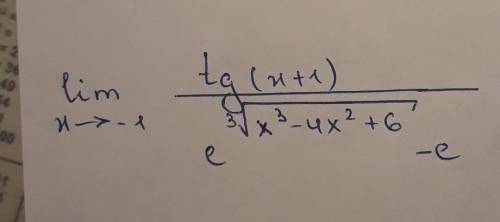 lim x→-1 tg(x+1) / (e^∛(x³-4x²+6) - e)